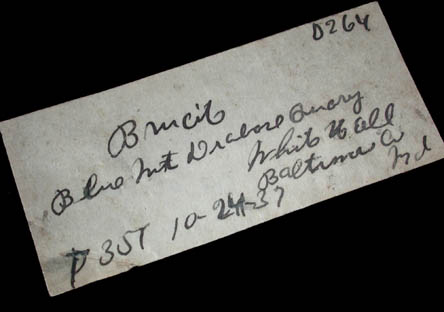 D264
Brucite
Blue Mt Diabase Quarry
White Hall
Baltimore Co
Md
P 35T 10-24-37